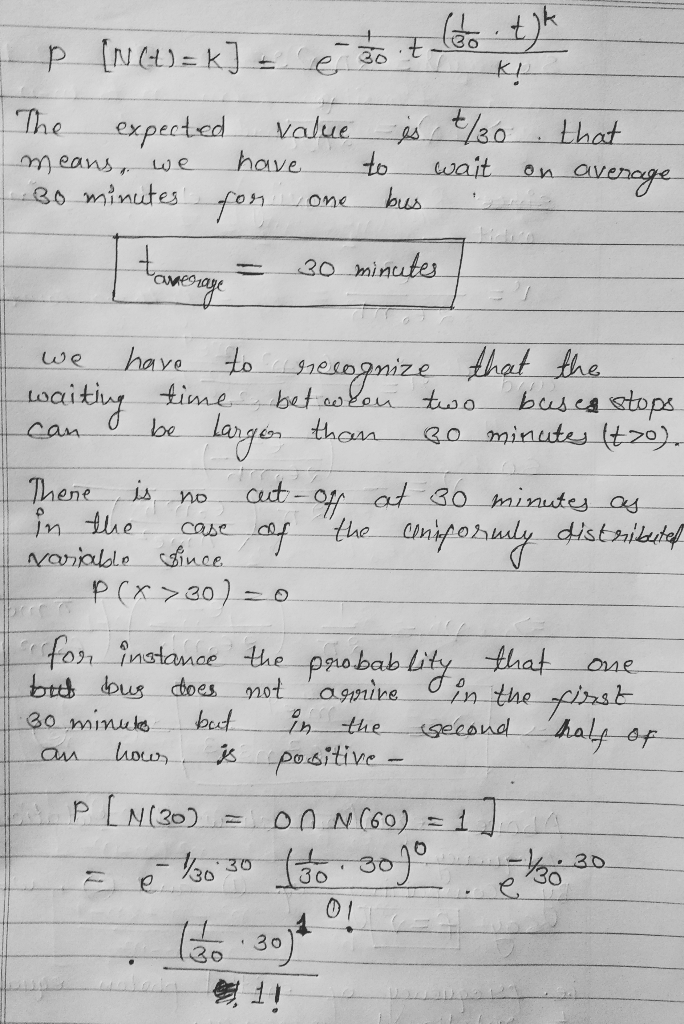 P [N(t)=K] = e^{-1/30 · t} (1/30 · t)^K / K!
The expected value is t/30 . that
means, we have to wait on average
30 minutes for one bus
t_average = 30 minutes
we have to recognize that the
waiting time between two buses stops
can be larger than 30 minutes (t>0).
There is no cut-off at 30 minutes as
in the case of the uniformly distributed
variable since
P(X > 30) = 0
for instance the probablity that one
bus does not arrive in the first
30 minutes but in the second half of
an hour is positive -
P [N(30) = 0 ∩ N(60) = 1]
= e^{-1/30 · 30} (1/30 · 30)^0 / 0! . e^{-1/30 · 30}
. (1/30 · 30)^1 / 1!